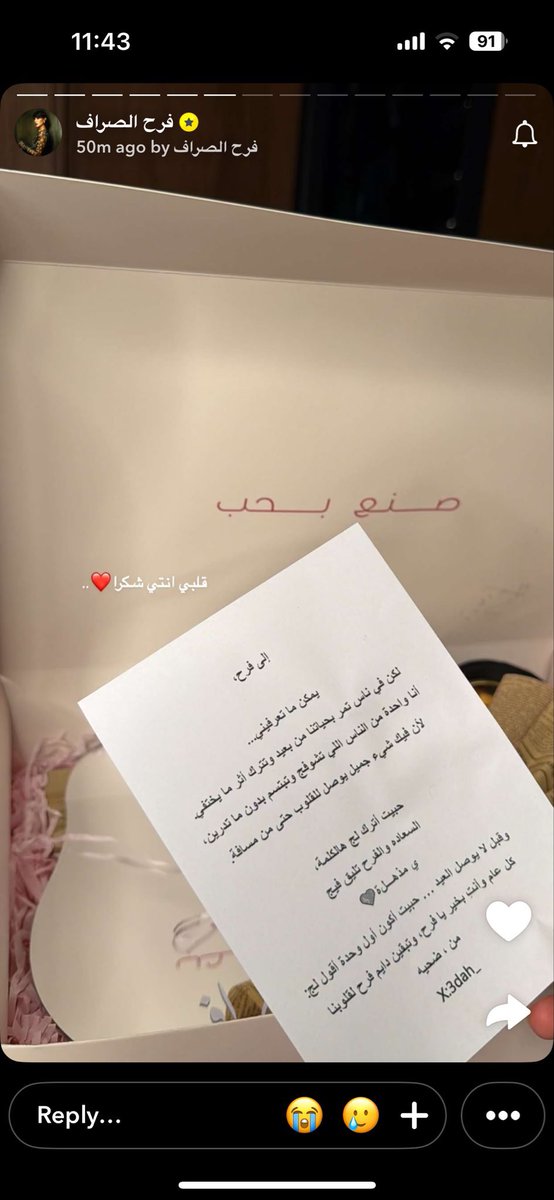 11:43
91
فرح الصراف
50m ago by فرح الصراف
صنع بحب
قلبي انتي شكرا❤️..
إلى فرح،
يمكن ما تعرفيني...
لكن في ناس تمر بحياتنا من بعيد وتترك أثر ما يختفي.
أنا واحدة من الناس اللي تشوفج وتبتسم بدون ما تدرين،
لأن فيك شيء جميل يوصل للقلوب حتى من مسافة.
حبيت أترك لج هالكلمة،
السعاده والفرح تليق فيج
ي مذهلة🩶
وقبل لا يوصل العيد ... حبيت أكون أول وحدة أقول لج:
كل عام وأنتِ بخير يا فرح، وتبقين دايم فرح لقلوبنا
من ، ضحيه
X:3dah_
Reply...